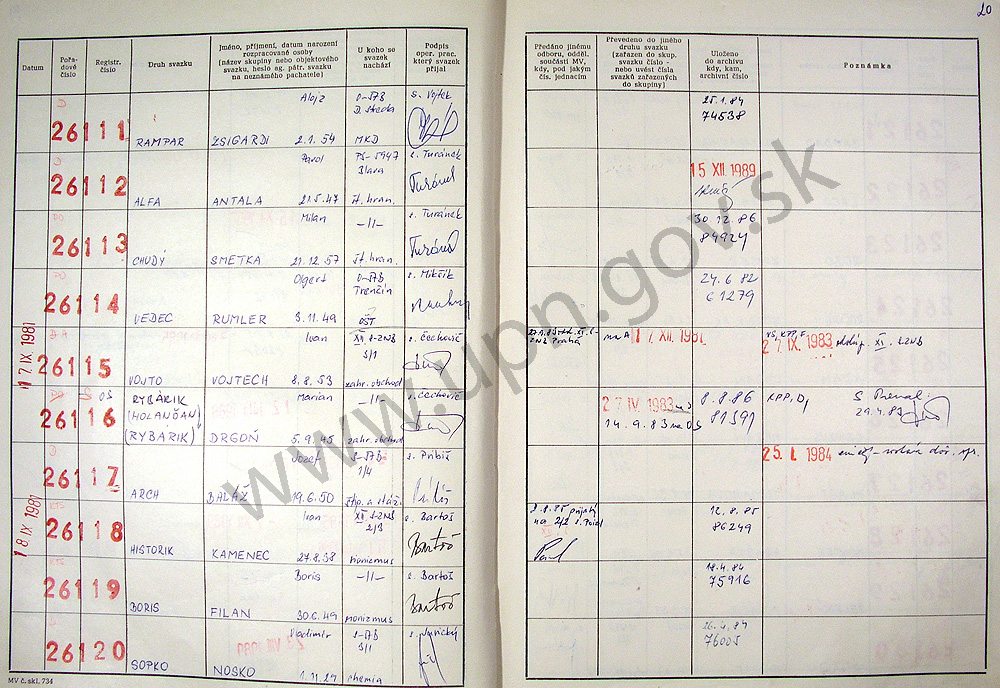 20
Datum
Pořa-
dové
číslo
Registr.
číslo
Druh svazku
Jméno, příjmení, datum narození
rozpracované osoby
(název skupiny nebo objektového
svazku, heslo ag. pátr. svazku
na neznámého pachatele)
U koho se
svazek
nachází
Podpis
oper. prac.
který svazek
přijal
Předáno jinému
odboru, odděl.
součásti MV,
kdy, pod jakým
čís. jednacím
Převedeno do jiného
druhu svazku
(zařazen do skup.
svazku číslo -
nebo uvést čísla
svazků zařazených
do skupiny)
Uloženo
do archivu
kdy, kam,
archivní číslo
Poznámka
Alojz
D. Streda
s. Vojtek
26111
RAMPAR
ZSIGARDI
2.1.54
MKD
25.1.84
74538
Pavol
PS-5947
Blava
s. Turánek
26112
ALFA
ANTALA
21.5.47
št. hran.
Turánek
15 XII. 1989
Milan
-11-
s. Turánek
26113
CHUDÝ
SMETKA
21.12.57
št. hran.
Turánek
30.12.86
84924
Olgert
Trenčín
s. Mikšík
26114
VEDEC
RUMLER
3.11.49
OŠT
24.6.82
61279
17 IX. 1981
Ivan
XII. S-ZNB
3/1
s. Čechovič
26115
VOJTO
VOJTECH
8.8.53
zahr. obchod
ZNB Praha
na A
17. XII. 1981
27. IX. 1983
XII. S-ZNB
RYBÁRIK
(HOLANĎAN)
(RYBÁRIK)
Marian
-11-
s. Čechovič
26116
DRGOŇ
5.9.45
zahr. obchod
27. IV. 1983
14.9.83 na OS
8.8.86
81597
KPP, D,
29.4.83
Jozef
1/4
s. Pribiš
26117
ARCH
BALÁŽ
19.6.50
štip. a stáži
25. I. 1984
18 IX. 1981
Ivan
XII. S-ZNB
2/3
s. Bartoš
26118
HISTORIK
KAMENEC
27.8.38
sionizmus
Bartoš
12.8.85
86249
Boris
-11-
s. Bartoš
26119
BORIS
FILAN
30.6.49
sionizmus
Bartoš
18.4.84
75916
Vladimír
3/1
26120
SOPKO
NOSKO
1.11.29
chemia
26.4.84
76005
MV č. skl. 734
www.upn.gov.sk